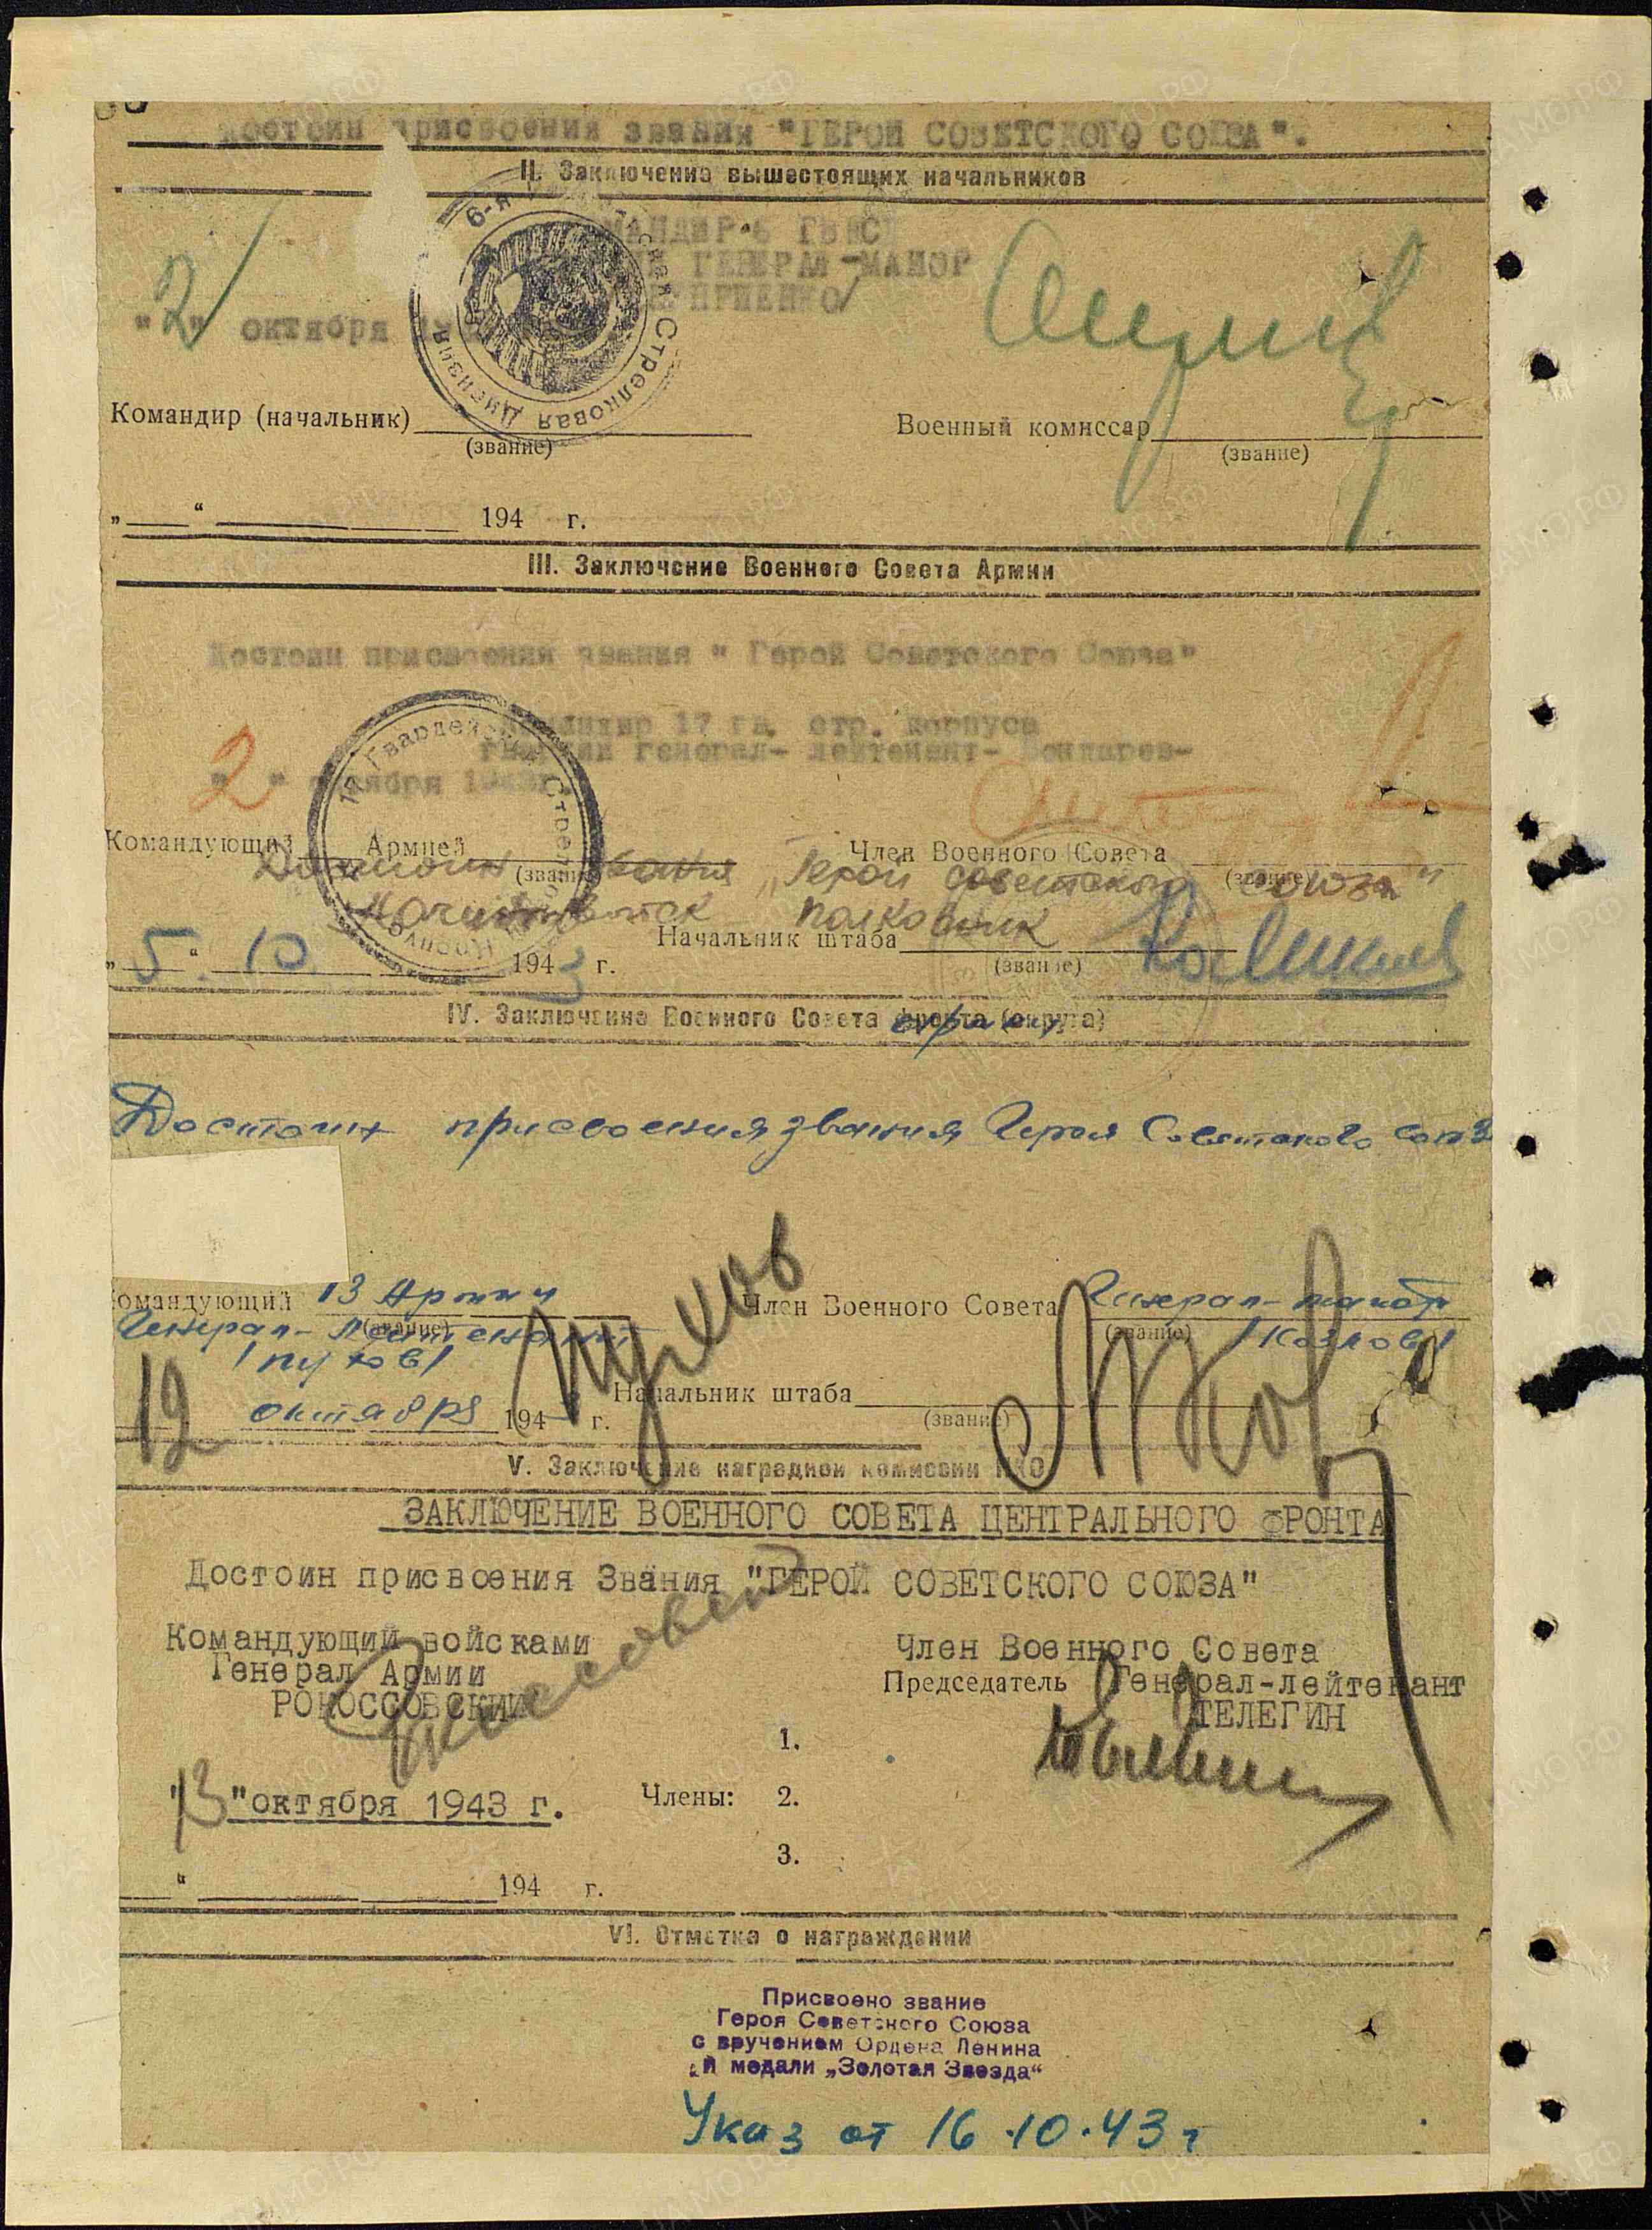 Достоин присвоения звания "ГЕРОЙ СОВЕТСКОГО СОЮЗА".
II. Заключение вышестоящих начальников
КОМАНДИР 6 ГВ КСД
ГЕНЕРАЛ-МАЙОР
/ОНУПРИЕНКО/
"2" октября
6-я Стрелковая Дивизия
Командир (начальник)
(звание)
Военный комиссар
(звание)
„ “ 194 г.
III. Заключение Военного Совета Армии
Достоин присвоения звания " Герой Советского Союза"
Командир 17 гв. стр. корпуса
гвардии генерал- лейтенант- Бондарев-
"2" октября 1943г.
17 Гвардейский Стрел Корпус
Командующий Армией
(звание)
Член Военного Совета
(звание)
Достоин звания „Герой Советского Союза"
полковник
Начальник штаба
(звание)
„5." 10. 1943 г.
IV. Заключение Военного Совета фронта (округа)
Достоин присвоения звания Героя Советского Союза
Командующий 13 Армии
(звание)
Генерал-Лейтенант
/Пухов/
Член Военного Совета Генерал-майор
(звание)
/Козлов/
Пухов
12 октября 194 г.
Начальник штаба
(звание)
V. Заключение наградной комиссии НКО
ЗАКЛЮЧЕНИЕ ВОЕННОГО СОВЕТА ЦЕНТРАЛЬНОГО ФРОНТА
Достоин присвоения Звания "ГЕРОЙ СОВЕТСКОГО СОЮЗА"
Командующий войсками
Генерал Армии
РОКОССОВСКИЙ
Член Военного Совета
Председатель Генерал-лейтенант
ТЕЛЕГИН
1.
"13"октября 1943 г.
Члены: 2.
3.
“ 194 г.
VI. Отметка о награждении
Присвоено звание
Героя Советского Союза
с вручением Ордена Ленина
и медали „Золотая Звезда“
Указ от 16.10.43 г